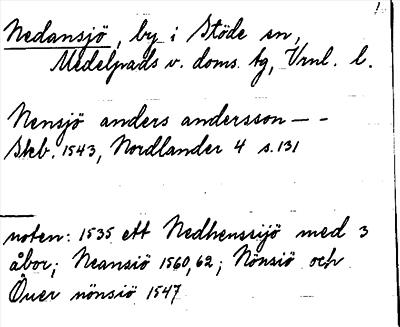 1.
Nedansjö, by i Stöde sn,
Medelpads v. doms. tg, Vrnl. l.
Nensjö anders andersson – –
Skb. 1543, Nordlander 4 s. 131
noten: 1535 ett Nedhenssijö med 3
åbor; Neansiö 1560, 62; Nönsiö och
Över nönsiö 1547